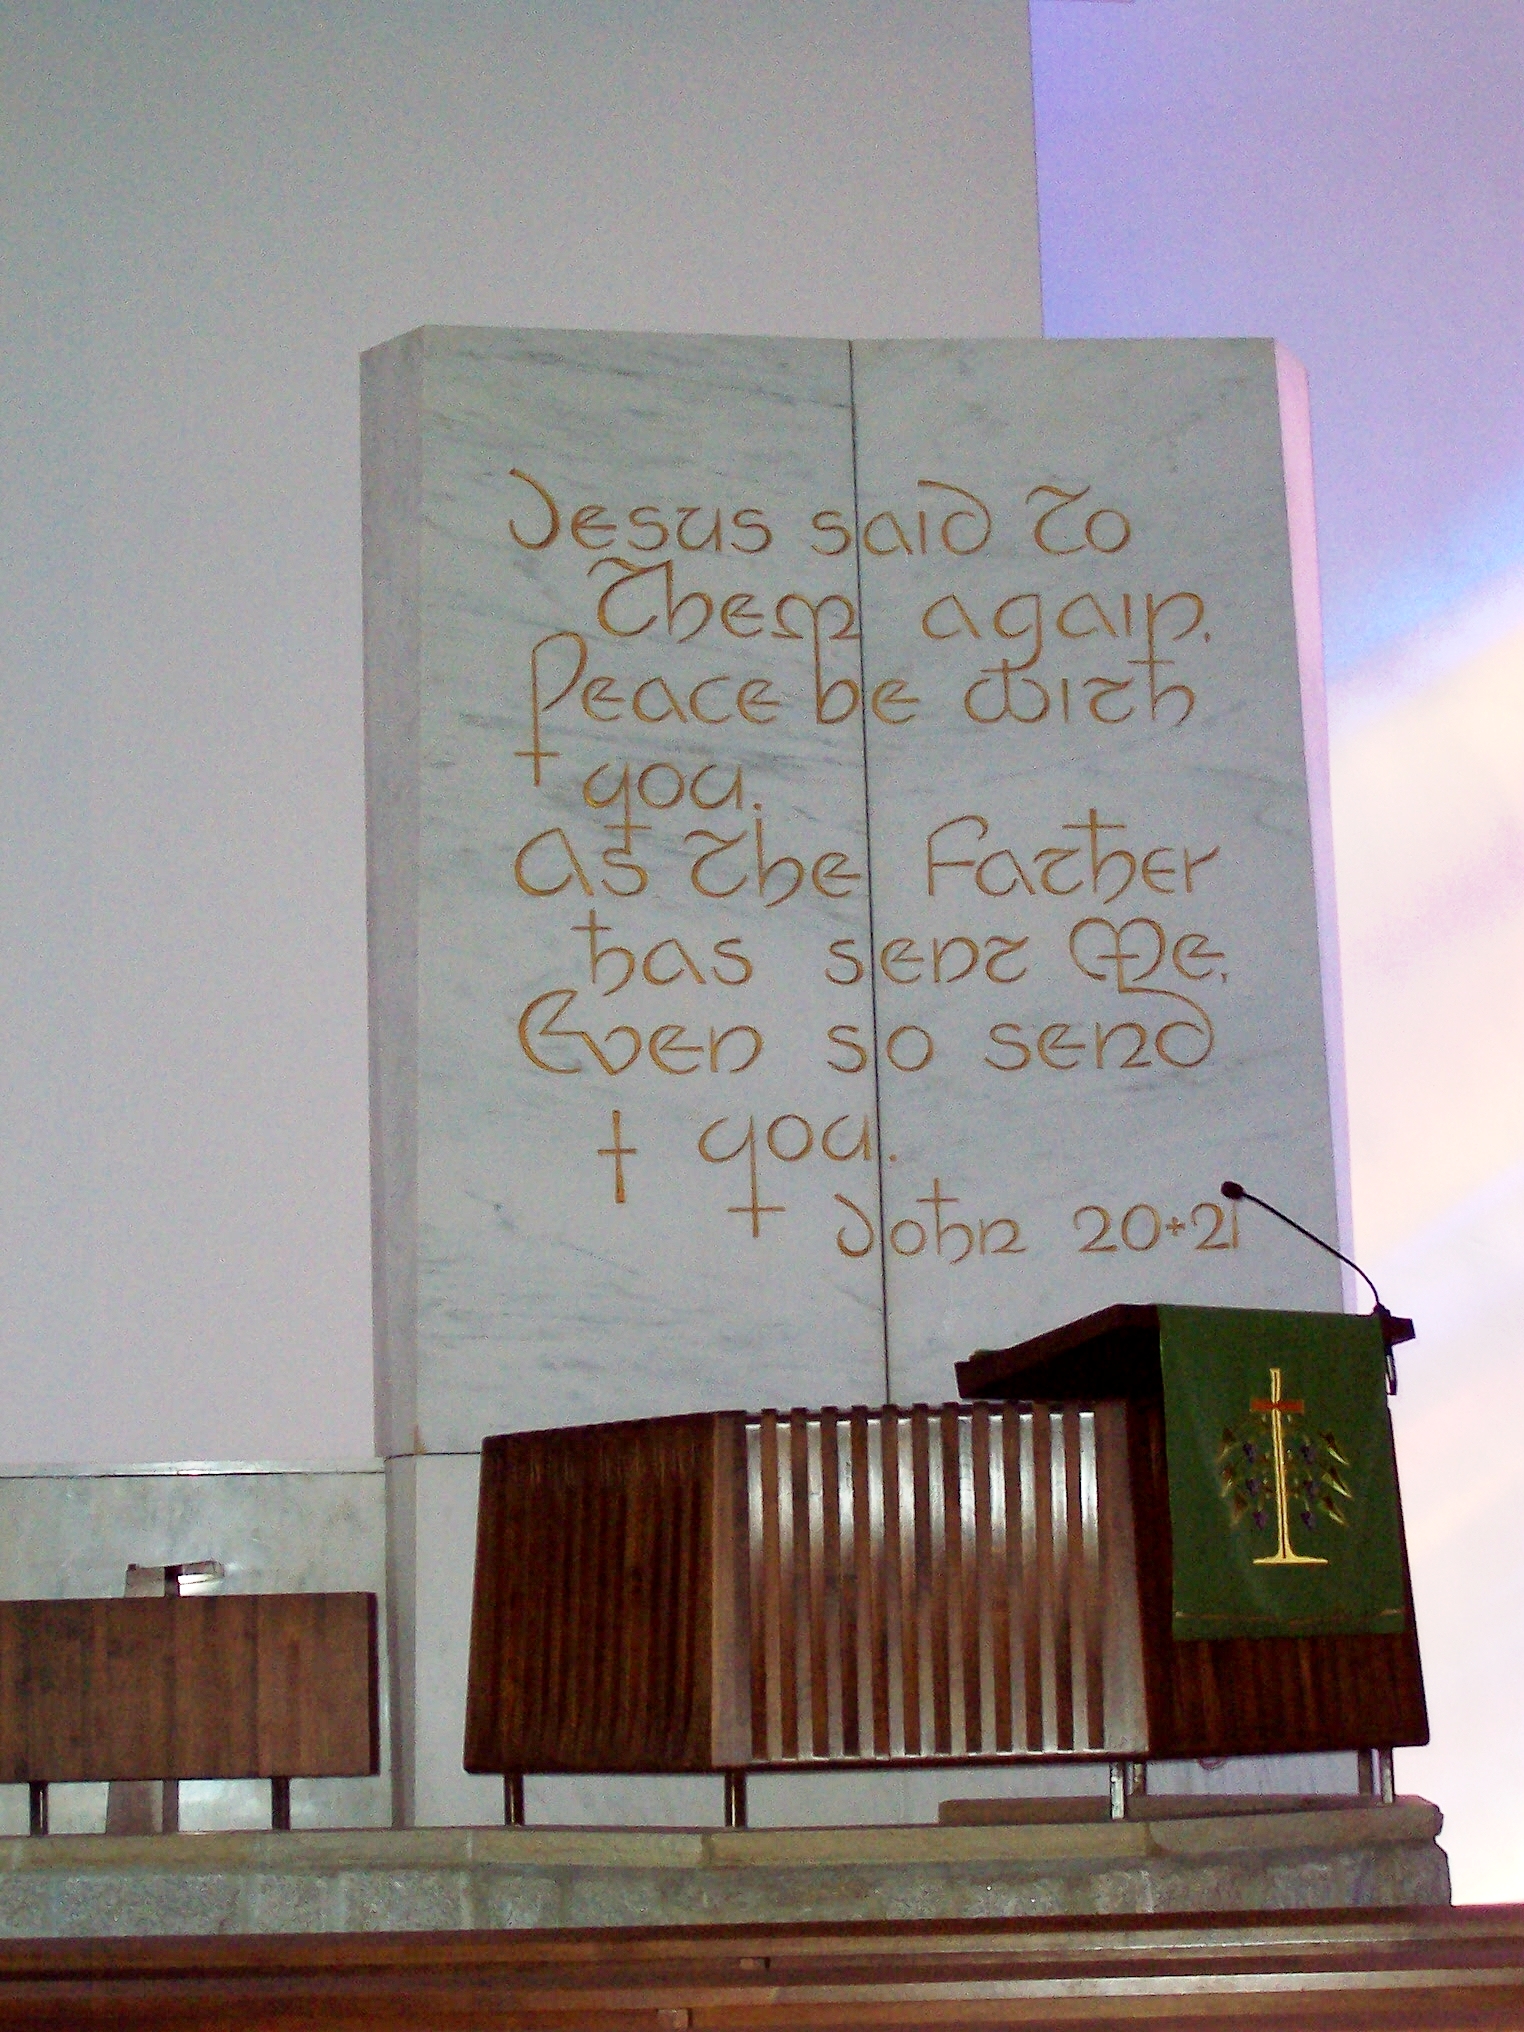 Jesus said To
Them again,
Peace be with
you.
As The Father
has sent Me,
Even so send
I you.
John 20+21